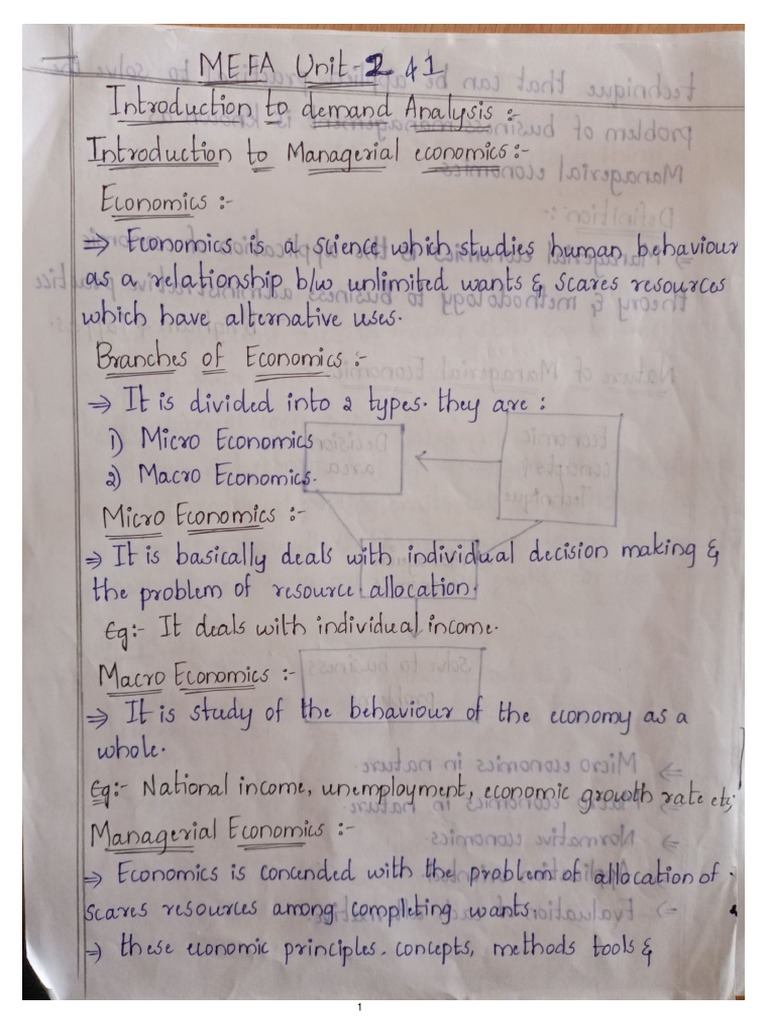 MEFA Unit-2 & 1
Introduction to demand Analysis :-
Introduction to Managerial economics:-
Economics :-
⇒ Economics is a science which studies human behaviour
as a relationship b/w unlimited wants & scares resources
which have alternative uses.
Branches of Economics :-
⇒ It is divided into 2 types. they are :
1) Micro Economics
2) Macro Economics.
Micro Economics :-
⇒ It is basically deals with individual decision making &
the problem of resource allocation.
Eg:- It deals with individual income.
Macro Economics :-
⇒ It is study of the behaviour of the economy as a
whole.
Eg:- National income, unemployment, economic growth rate etc;
Managerial Economics :-
⇒ Economics is concunded with the problem of allocation of
scares resources among completing wants.
⇒ these economic principles. concepts, methods tools &
1